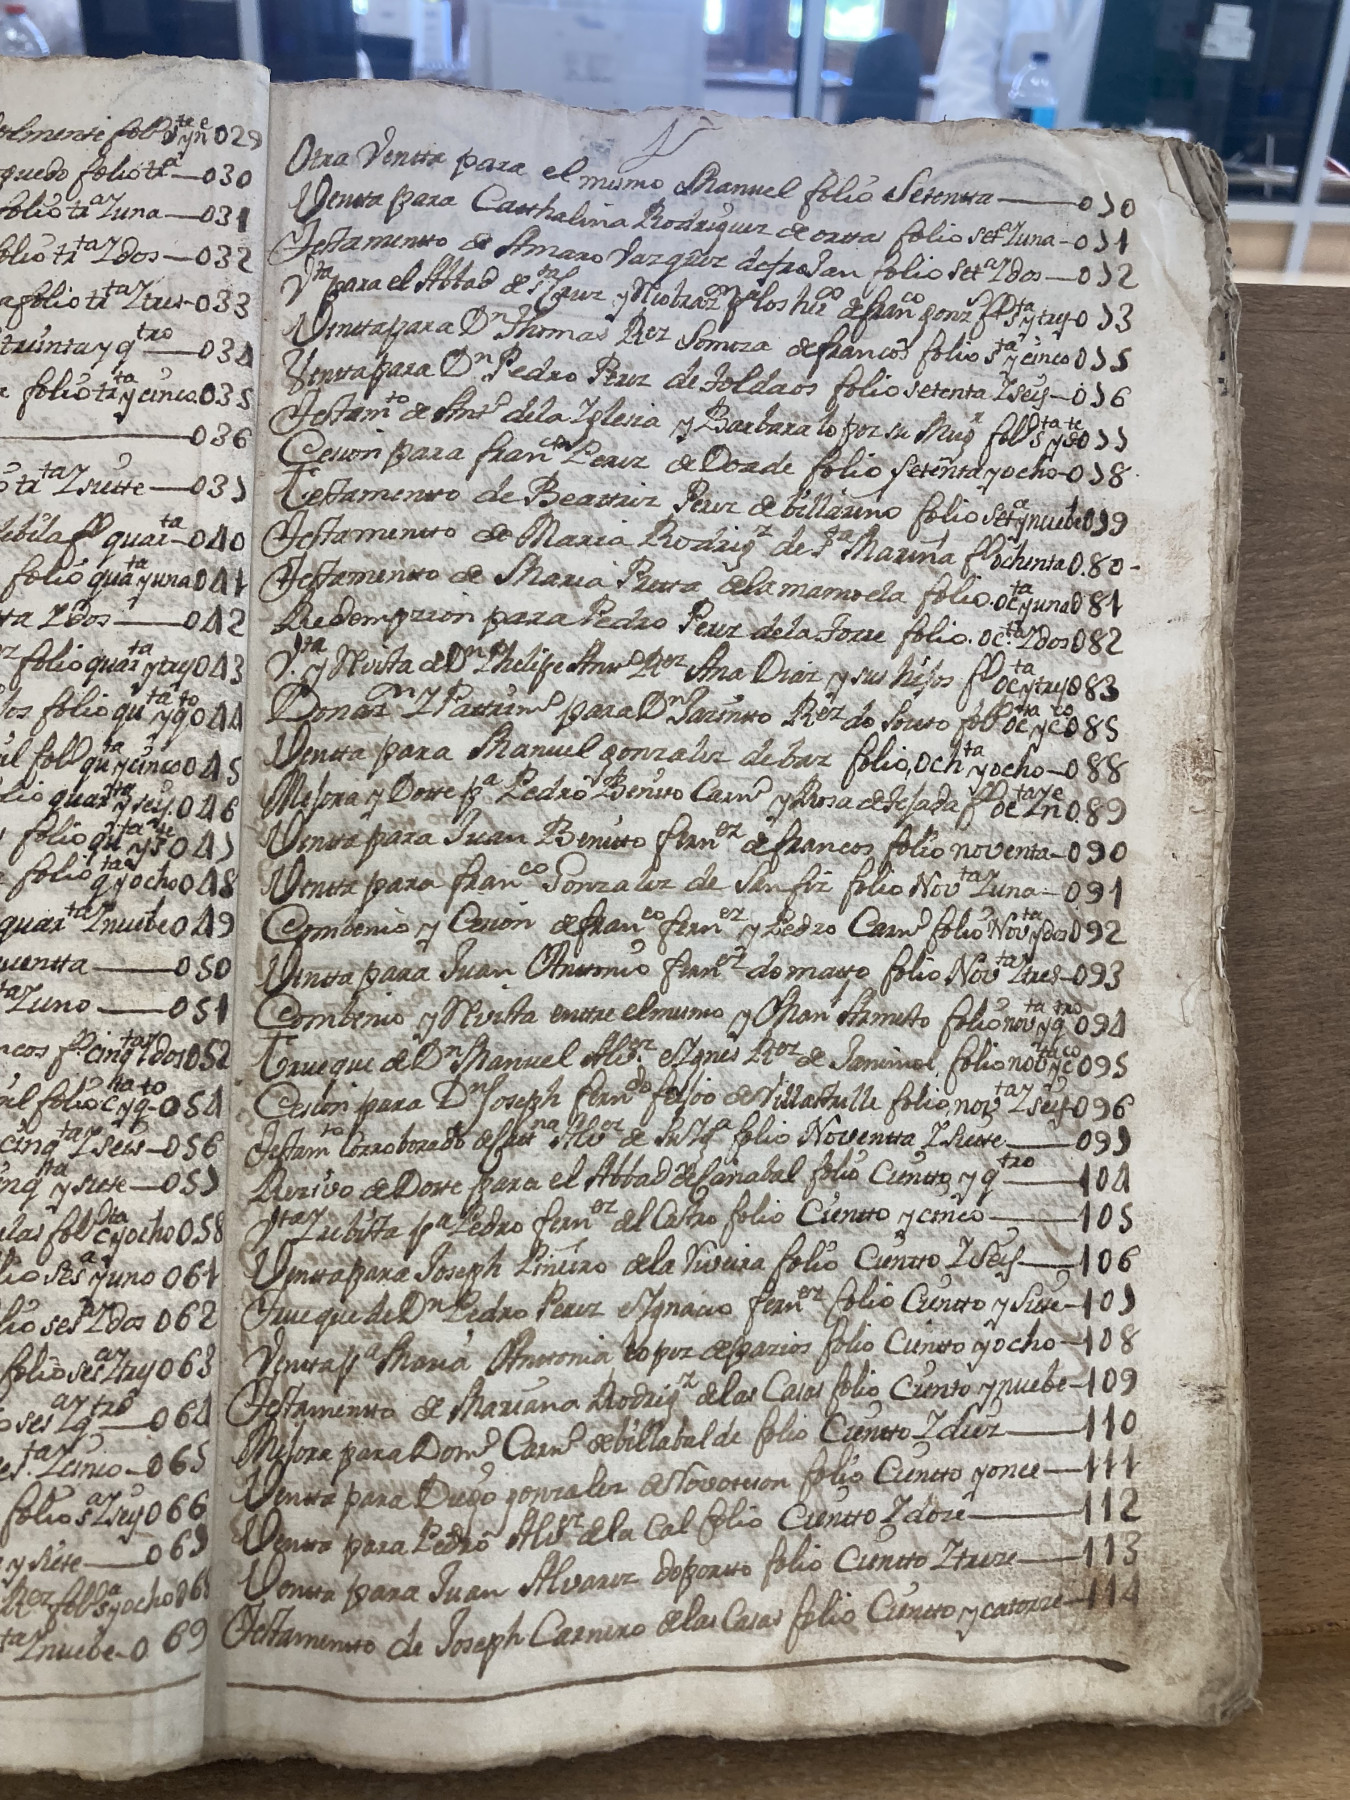 olmente folº vᵗᵉ yⁿᵉ 029
quedo folio trᵗᵃ — 030
folio trᵗᵃ Zuna — 031
folio trᵗᵃ Zdos — 032
a folio trᵗᵃ Ztres — 033
trinta y qᵗʳᵒ — 034
folio trᵗᵃ y cinco 035
— 036
trᵗᵃ Z siete — 037
fº quarᵗᵃ — 040
folio quaᵗᵃ y una 041
ta Zdos — 042
folio quarᵗᵃ y trey 043
los folio quᵗᵃ y qᵗᵒ 044
folº quᵗᵃ y cinco 045
folio quarᵗᵃ y seis 046
folio quᵗᵃ y sᵗᵉ 047
folio qᵗᵃ y ocho 048
quarᵗᵃ Z nuebe 049
quentta — 050
ᵗᵃ Z uno — 051
ncos fº cinqᵗᵃ Z dos 052
folio cᵗᵃ y qᵗᵒ — 054
cinqᵗᵃ Z seis — 056
cinqᵗᵃ y siete — 057
folº cᵗᵃ y ocho 058
folio sesᵃ y uno 061
folio sesᵗᵃ Z dos 062
folio sesᵃ Z trey 063
sesᵃ Z qᵗʳᵒ — 064
sesᵗᵃ Z cinco — 065
folio sᵃ Z sey 066
y siete — 067
Rᵉᶻ folº sᵃ y ocho 068
ᵗᵃ Z nuebe — 069
Otra Ventta para el mismo Manuel folio Settentta — 070
Ventta para Catthalina Rodriguez de orttas folio setᵃ Zuna — 071
Testamentto de Amaro Vazquez de frojan folio setᵃ Zdos — 072
Vᵗᵃ para el Abbad de Sⁿ y los hᵉʳᵒˢ de franᶜᵒ gonz fº sᵗᵃ y trey 073
Ventta para Dⁿ Thomas Rᵉᶻ Somoza de francos folio sᵗᵃ y cinco 075
Ventta para Dⁿ Pedro Perez de toldaos folio setenta Zseis — 076
Testamᵗᵒ de Antᵒ dela Iglesia y Barbara lopez su Mugʳ folº sᵗᵃ y sᵗᵉ 077
Cesion para franᶜᵒ Perez de Donde folio setenta y ocho — 078
Testamentto de Beattriz Perez de billarino folio setᵃ y nuebe 079
Testamentto de Maria Rodrigᶻ de Sᵗᵃ Mariña fº ochenta 080
Testamentto de Maria Prieta dela mamoela folio ocᵗᵃ y una 081
Redempzion para Pedro Perez dela torre folio ocᵗᵃ Zdos 082
Vᵗᵃ y Rivista de Dⁿ Phelipe Antᵒ Rᵉᶻ Ana Diaz y sus hijos fº ocᵗᵃ y trey 083
Donazᵒⁿ Z Pattrimᵒ para Dⁿ Jazintto Rᵉᶻ do Soutto folº ocᵗᵃ y cᶜᵒ 085
Ventta para Manuel gonzalez de baz folio ochᵗᵃ y ocho — 088
Mejora y Dotte pᵃ Pedro Benitto Carnᵒ y Rosa de tejada fº ocᵗᵃ Znᵉ 089
Ventta para Juan Benitto fernᵉᶻ de francos folio noventa — 090
Ventta para franᶜᵒ Gonzalez de Sanfiz folio Novᵗᵃ Zuna — 091
Combenio y Cesion de franᶜᵒ fernᵉᶻ y Pedro Carnᵒ folio Novᵗᵃ y dos 092
Ventta para Juan Anttonio fernᵉᶻ do matto folio Novᵗᵃ Ztres — 093
Combenio y Rivista enttre el mismo y Armestto folio novᵗᵃ y qᵗʳᵒ 094
Trueque de Dⁿ Manuel Alvᵉᶻ e Ygnes Rᵉᶻ de folio novᵗᵃ y cᶜᵒ 095
Cesion para Dⁿ Joseph fernᵈᵒ feijoo de Villattrille folio novᵗᵃ Zseis 096
Testamᵗᵒ Corroborado de Cattⁿᵃ Alvᵉᶻ de folio Noventta Zsiette — 099
Rezivo de Dotte para el Abbad de Canabal folio Cientto y qᵗʳᵒ — 104
Vᵗᵃ y rebista pᵃ Pedro fernᵉᶻ del Castro folio Cientto y cinco — 105
Ventta para Joseph Piñeiro dela Riveira folio Cientto Zseis — 106
Trueque de Dⁿ Pedro Perez e Ignacio fernᵉᶻ folio Cientto y siete — 107
Ventta pᵃ Maria Anttonia lopez de pazios folio Cientto y ocho — 108
Testamentto de Mariana Rodrigᶻ de las Casas folio Ciento y nuebe — 109
Mejora para Domᵒ Carnᵒ de billabalde folio Cientto Zdiez — 110
Ventta para Diego gonzalez de folio Cientto y once — 111
Ventta para Pedro Alvᵉᶻ de la Cal folio Cientto Zdoze — 112
Ventta para Juan Alvarez do portto folio Cientto Ztreze — 113
Testamentto de Joseph Carnero de las Casas folio Cientto y catorze — 114